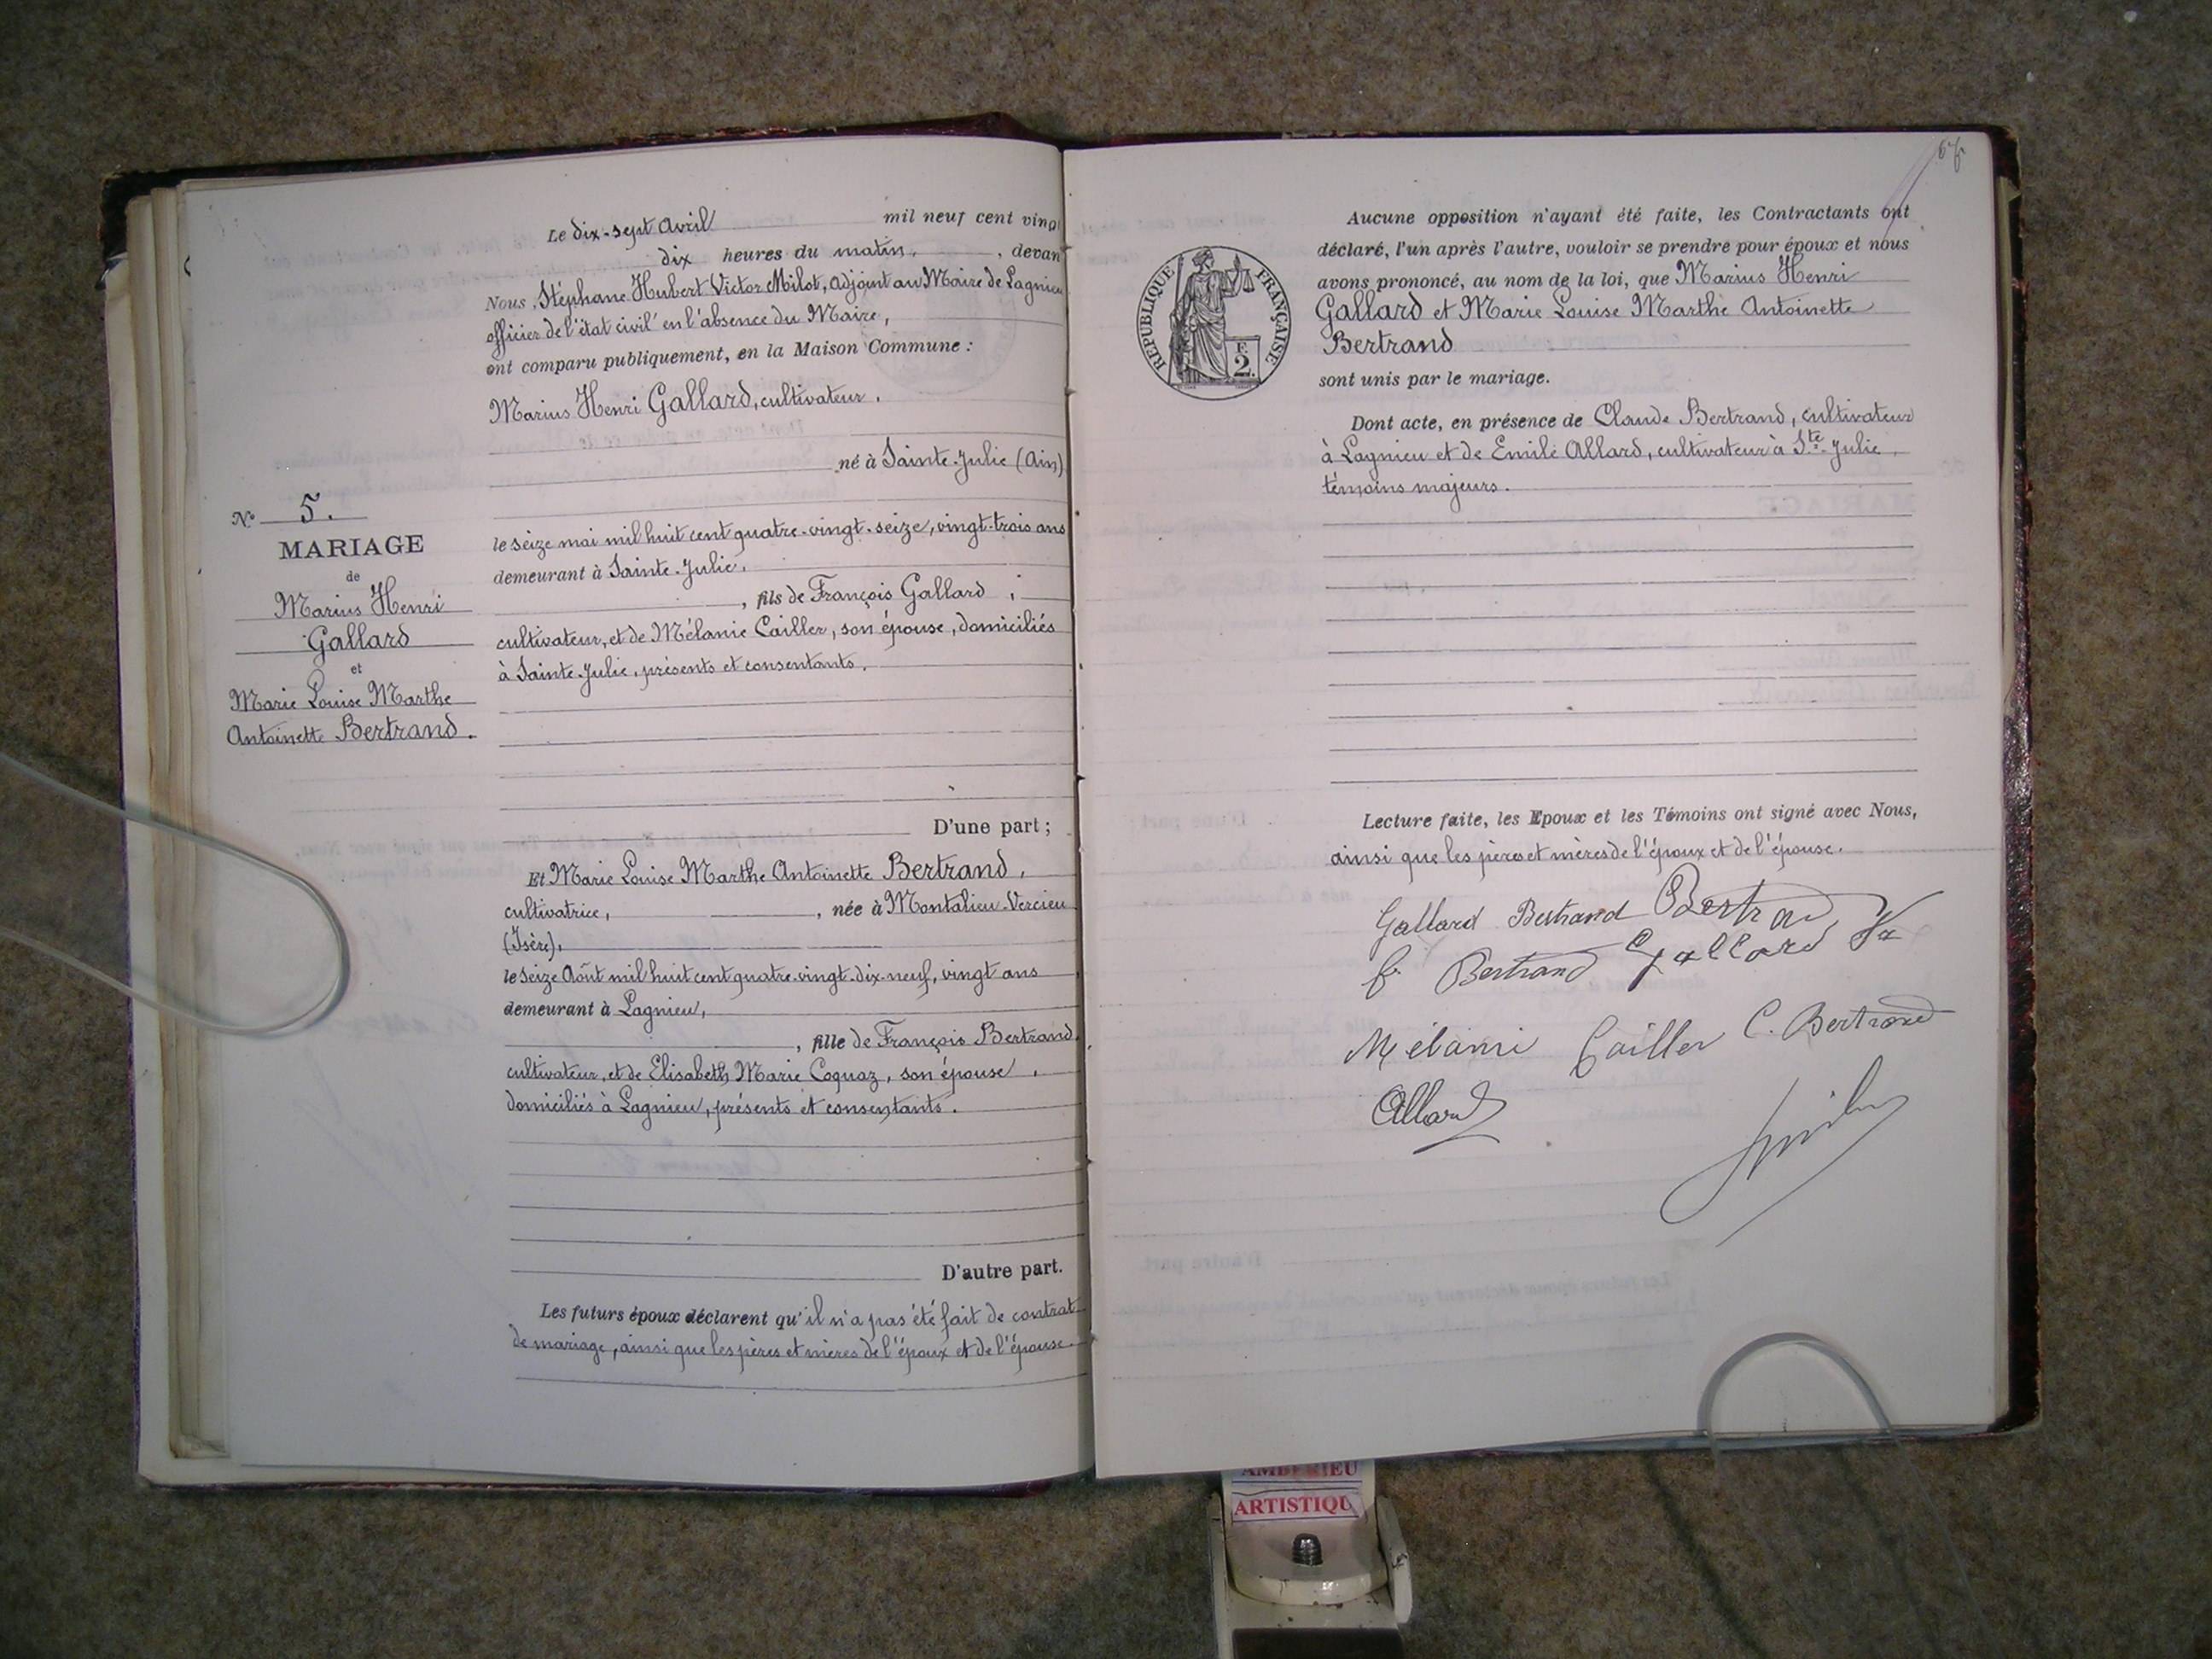 Le dix-sept Avril mil neuf cent ving
dix heures du matin, , devan
Nous, Stéphane Hubert Victor Milot, adjoint au Maire de Lagnieu
officier de l'état civil en l'absence du Maire,
ont comparu publiquement, en la Maison Commune :
Marius Henri Gallard, cultivateur,
né à Sainte-Julie (Ain)
N° 5.
MARIAGE
de
Marius Henri
Gallard
et
Marie Louise Marthe
Antoinette Bertrand.
le seize mai mil huit cent quatre-vingt-seize, vingt-trois ans
demeurant à Sainte-Julie,
, fils de François Gallard ,
cultivateur, et de Mélanie Cailler, son épouse, domiciliés
à Sainte-Julie, présents et consentants.
D'une part ;
Et Marie Louise Marthe Antoinette Bertrand,
cultivatrice, , née à Montalieu-Vercieu
(Isère),
le seize Août mil huit cent quatre-vingt-dix-neuf, vingt ans
demeurant à Lagnieu,
, fille de François Bertrand
cultivateur, et de Elisabeth Marie Coquaz, son épouse ,
domiciliés à Lagnieu, présents et consentants.
D'autre part.
Les futurs époux déclarent qu'il n'a pas été fait de contrat
de mariage, ainsi que les pères et mères de l'époux et de l'épouse.
REPUBLIQUE FRANÇAISE
2 F.
Aucune opposition n'ayant été faite, les Contractants ont
déclaré, l'un après l'autre, vouloir se prendre pour époux et nous
avons prononcé, au nom de la loi, que Marius Henri
Gallard et Marie Louise Marthe Antoinette
Bertrand
sont unis par le mariage.
Dont acte, en présence de Claude Bertrand, cultivateur
à Lagnieu et de Emile Allard, cultivateur à Ste-Julie,
témoins majeurs.
Lecture faite, les Epoux et les Témoins ont signé avec Nous,
ainsi que les pères et mères de l'époux et de l'épouse.
Gallard Bertrand Bertrand
Bertrand Gallard
Mélanie Cailler C. Bertrand
Allard
AMBERIEU
ARTISTIQU